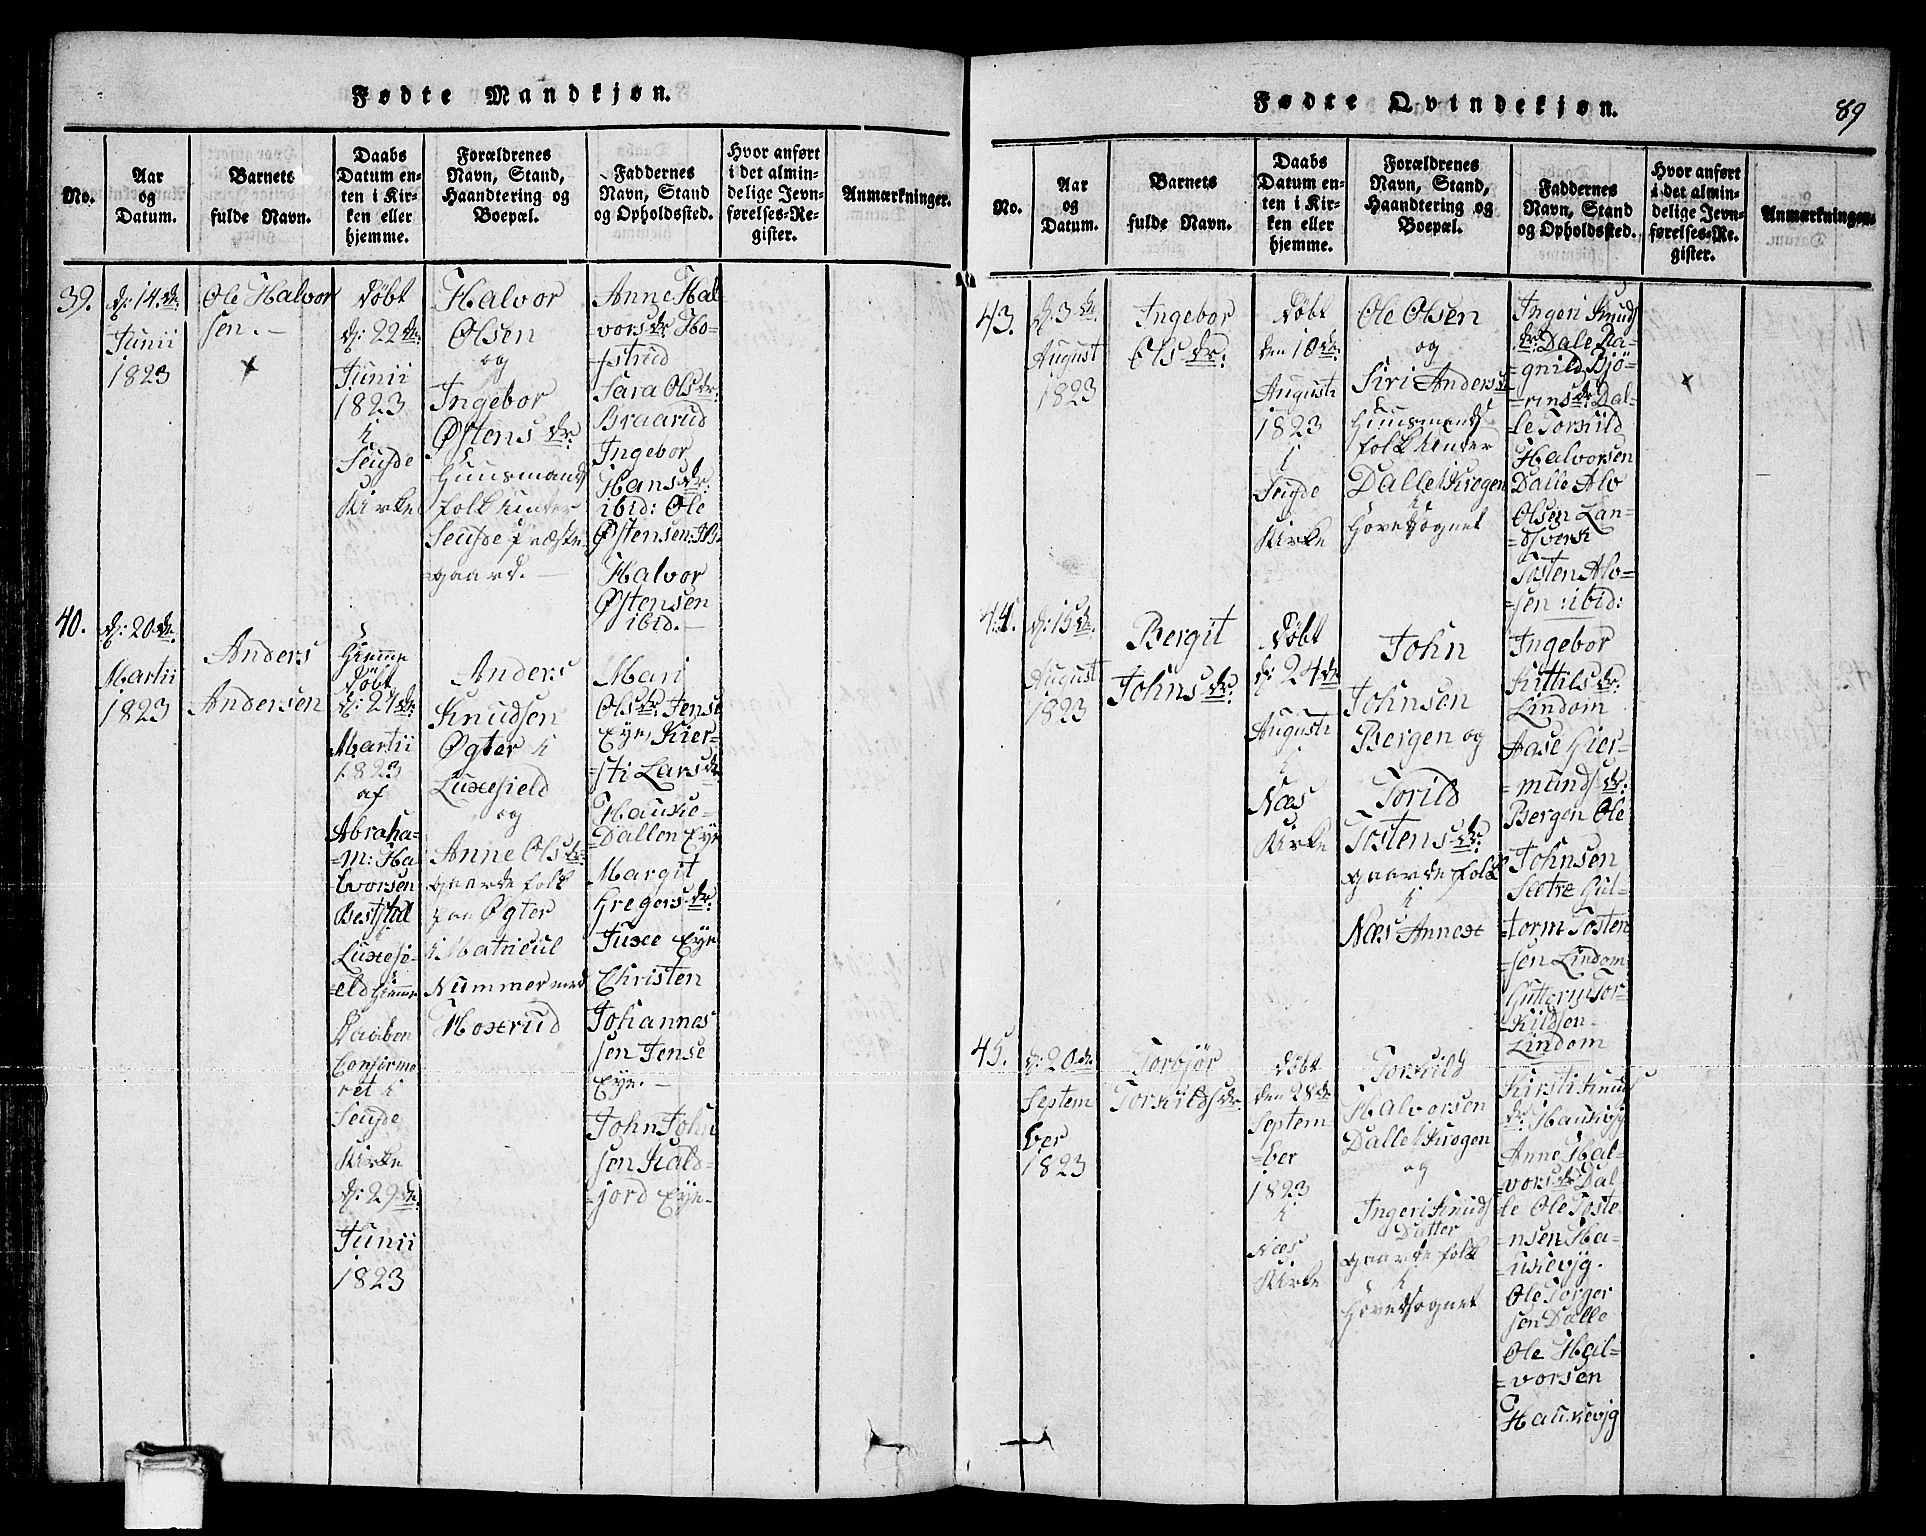 Fødte Mandkjøn.
No.
Aar
og
Datum.
Barnets
fulde Navn.
Daabs
Datum en-
ten i Kir-
ken eller
hjemme.
Forældrenes
Navn, Stand,
Haandtering og
Boepæl.
Faddernes
Navn, Stand
og Opholdssted.
Hvor anført
i det almin-
delige Jevn-
førelses-Re-
gister.
Anmærkninger.
39.
d: 14de
Junii
1823
Ole Halvor
sen.
Døbt
d: 22de
Junii
1823
i
Seufde
Kirke
Halvor
Olsen
og
Ingebor
Østens dr:
Huusmands
folk under
Seufde Præste
gaard.
Anne Hal
vorsdr Ho-
fstrud
Sara Olsdr:
Braarud
Ingebor
Hansdr:
ibid: Ole
Østensen
Halvor
Østensen
ibid.
40.
d: 20de
Martii
1823
Anders
Andersen
Hiemme
Døbt
Martii
1823
af
Abraha-
m: Ha
lvorsen
i
Luxefi-
eld hiemme
Daaben
Confirme
ret i
Seufde
Kirke
d: 29de
Junii
1823
Anders
Knudsen
Øgter i
Luxefield
og
Anne Olsdr
gaardefolk
paa Øgter
i Matricul
Nummer med
Moxrud
Mari
Olsdr Jense
Eye, Kier-
sti Larsdr
Haukie-
Dallen Eye
Margit
Gregersdr:
Juxe Eye
Christen
Johannes
sen Jense
Eye.
John John
sen Kald-
jord Eye
Fødte Qvindekjøn.
89
No.
Aar
og
Datum.
Barnets
fulde Navn.
Daabs
Datum en-
ten i Kir-
ken eller
hjemme.
Forældrenes
Navn, Stand,
Haandtering og
Boepæl.
Faddernes
Navn, Stand
og Opholdssted.
Hvor anført
i det almin-
delige Jevn-
førelses-Re-
gister.
Anmærkninger.
43.
d. 3de
August
1823
Ingebor
Olsdr:
Døbt
den 10de
Augusti
1823
i
Seufde
Kirke
Ole Olsen
og
Siri Andersd
Huusmands
folk under
Dalle Krogen
i
Hovedsognet
Ingeri Knuds
dr: Dale Ra-
gnild Bjø-
rnsdr: Dal-
le Torkild
Halvorsen
Dalle Alv
Olsen Lan-
dsverk
Tosten Alv-
sen: ibid:
44.
d: 15de
August
1823
Bergit
Johnsdr:
Døbt
d: 24de
Augusti
i
Næs
Kirke
John
Johnsen
Bergen og
Torild
Tostensdr:
gaardefolk
i
Næs Annext
Ingebor
Kittilsdr:
Lindom
Aase Gier-
mundsdr:
Bergen Ole
Johnsen
Sætre Gul-
torm Tosten
sen Lindom
Guttorm Tor-
kildsen
Lindom
45.
d: 20de
Septem
ber
1823
Torbjør
Torkildsdr:
Døbt
den 28de
Septem
ber
1823
i
Næs
Kirke
Torkild
Halvorsen
Dalle Krogen
og
Ingeri Knuds
Datter
gaardefolk
i
Hovedsognet
Kirsti Knuds
dr: Haukevjg
Anne Hal-
vorsdr Dal
le Ole Toste
nsen Ha-
ukevjg.
Ole Torger
sen Dalle
Ole Hal-
vorsen
Haukevjg